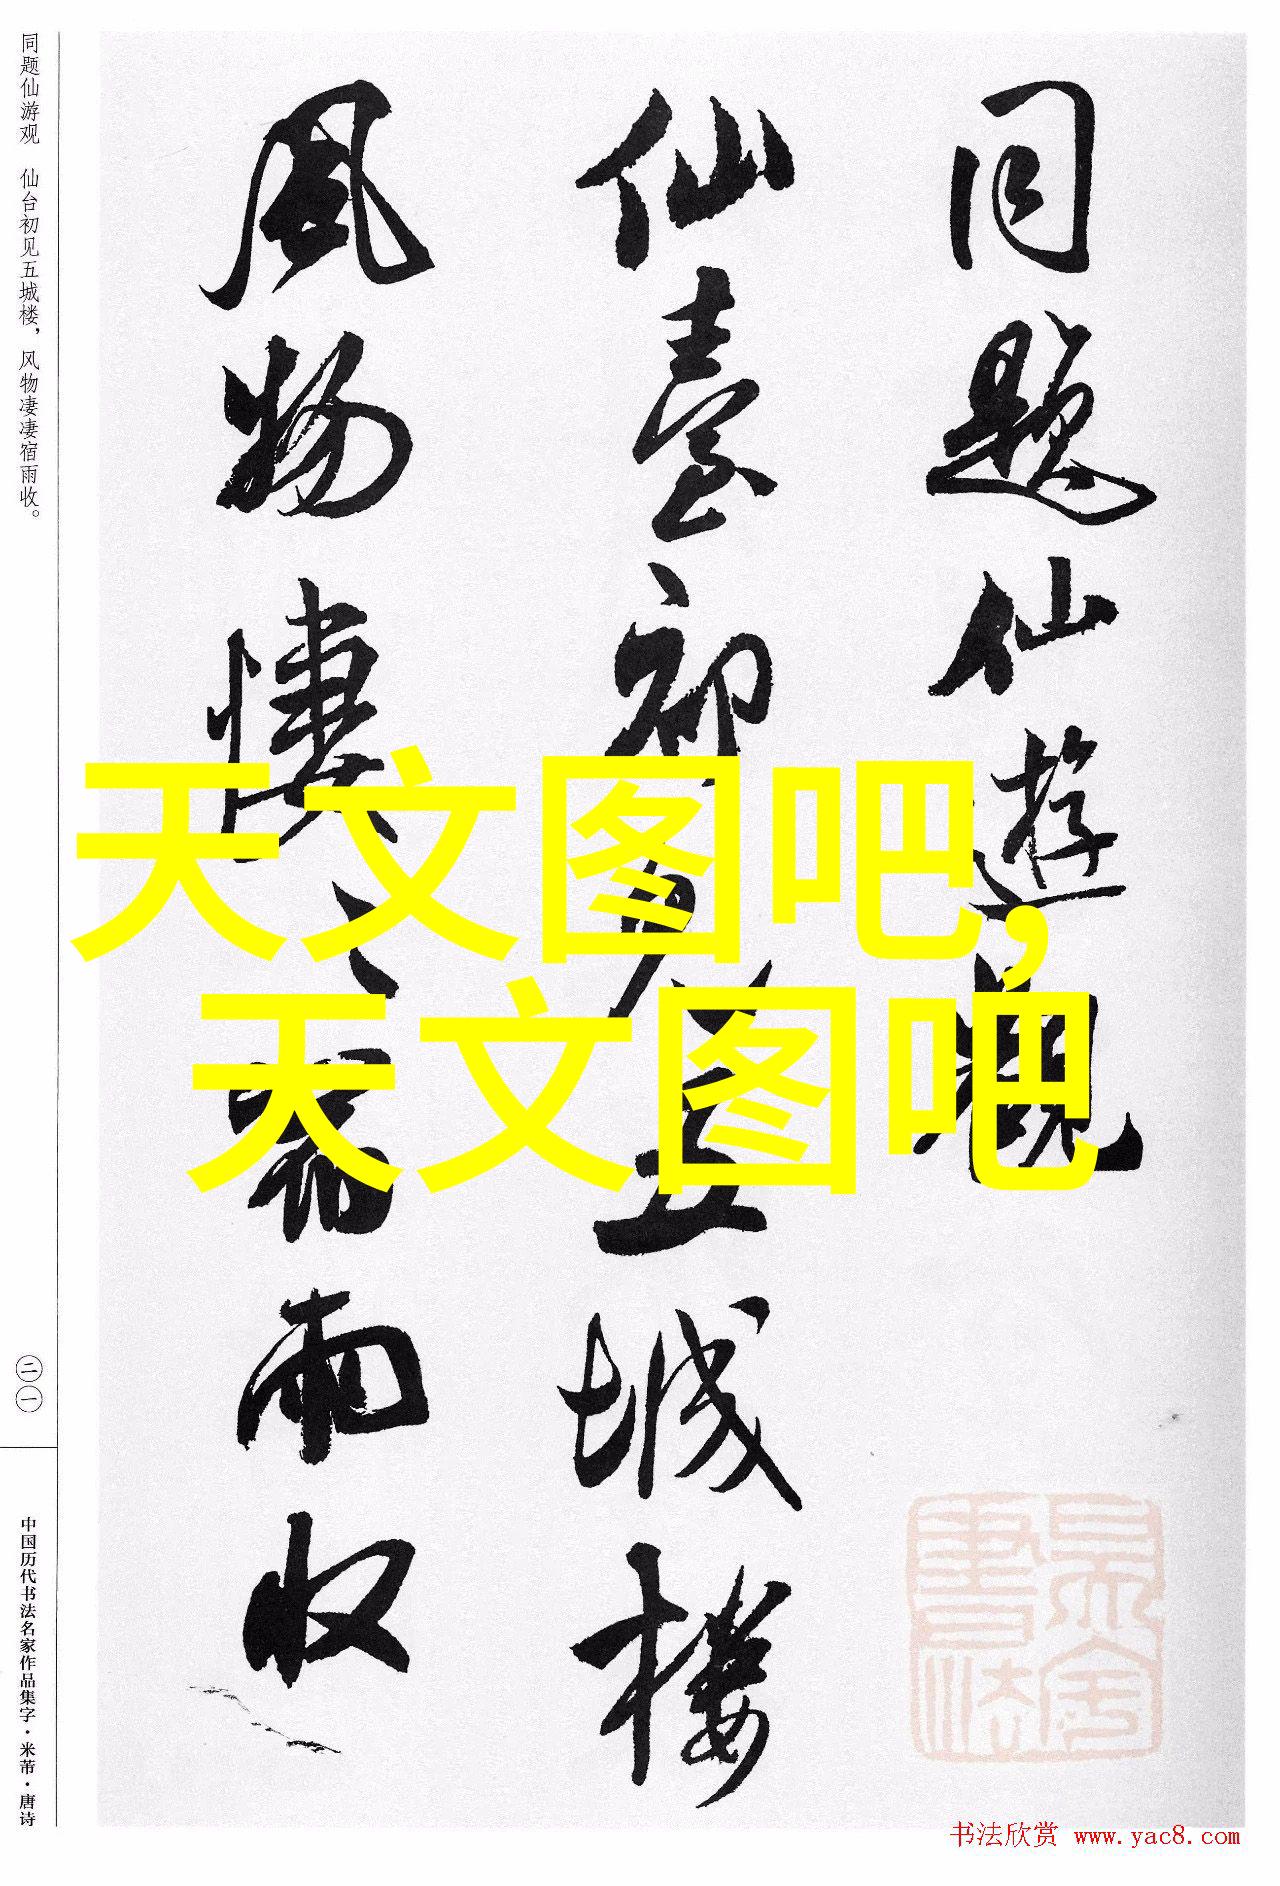 同题仙游观 仙台初见五城楼，风物凄凄宿雨收。
二一
中国历代书法名家作品集字·米芾·唐诗
同题仙遊觀
仙臺初見五城樓
風物悽〻宿雨收
天文图吧，
天文图吧
书法欣赏 www.yac8.com